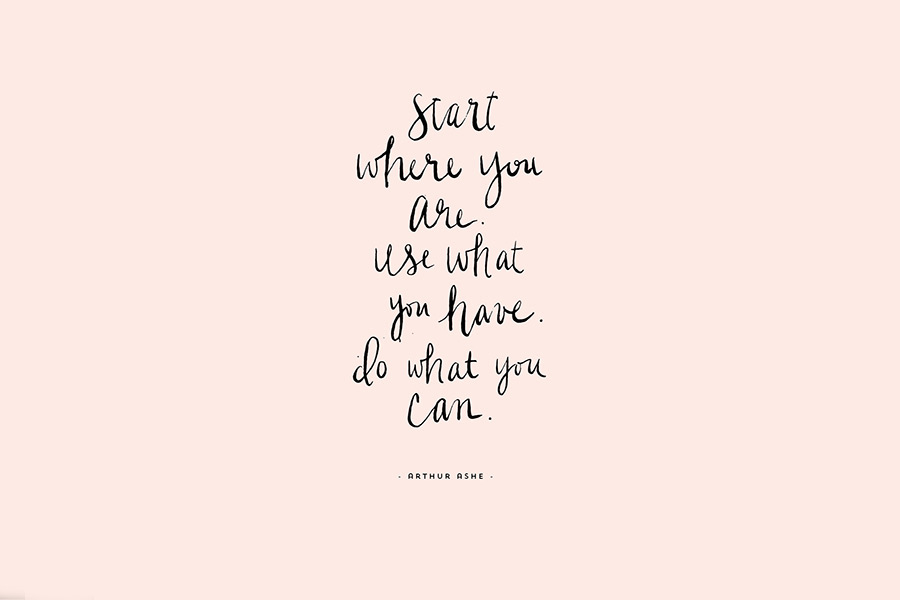 Start
where you
are.
use what
you have.
do what you
can.
- ARTHUR ASHE -